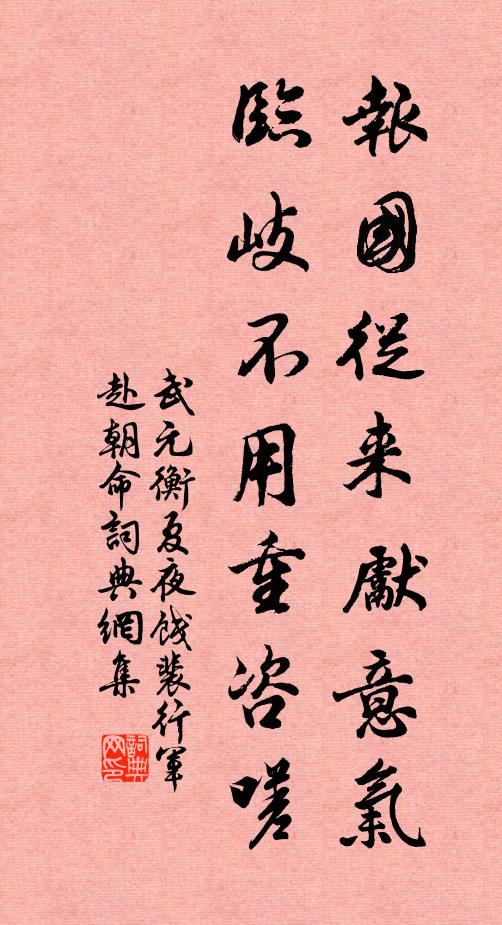 報國從来獻意氣
臨岐不用重咨嗟
武元衡夏夜餞裴行軍
赴朝命詞典網集
詞典
网印